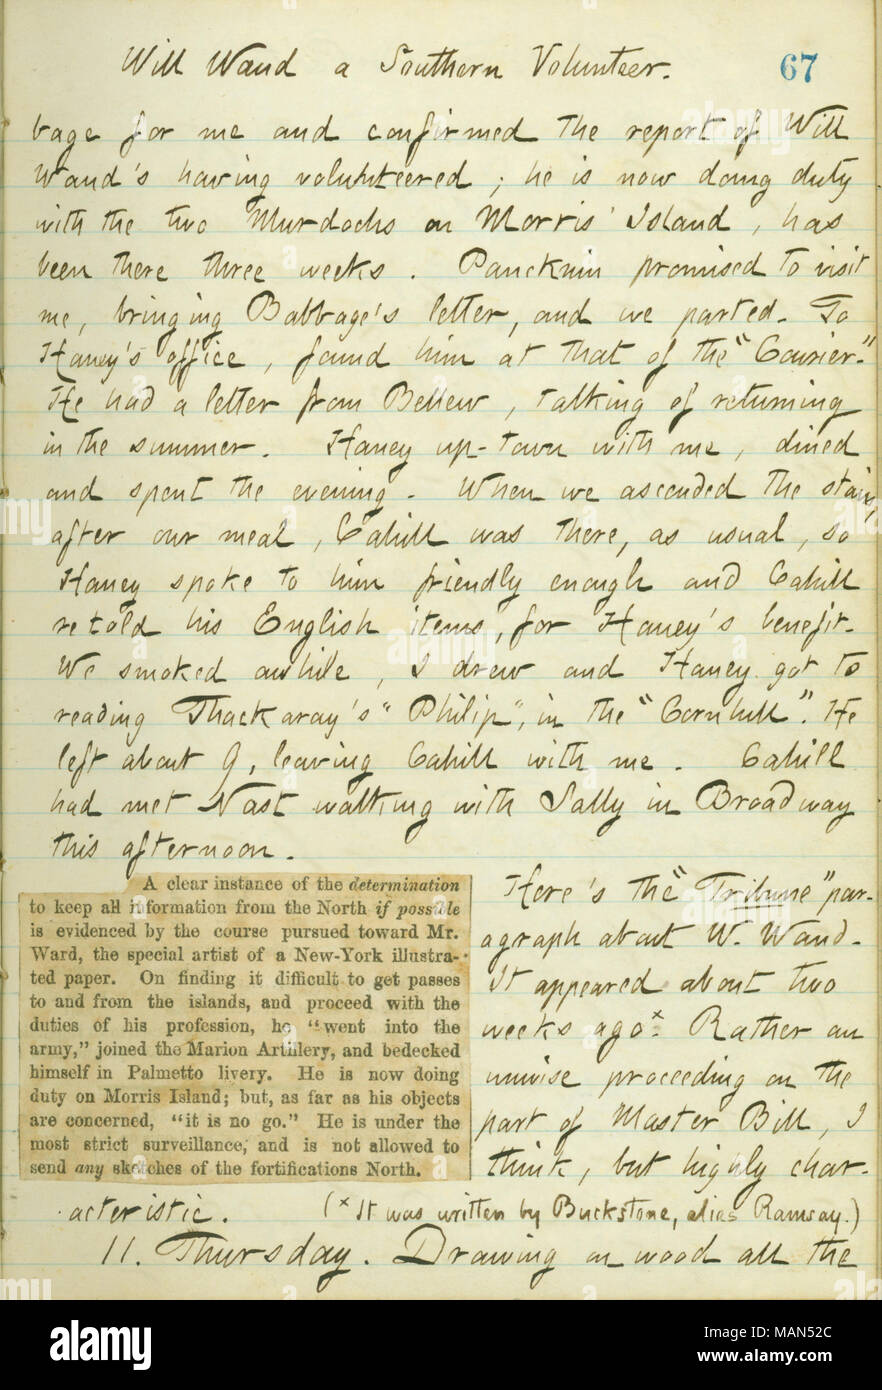 Will Waud a Southern Volunteer. 67
bage for me and confirmed the report of Will
Waud's having volunteered; he is now doing duty
with the two Murdochs on Morris' Island, has
been there three weeks. Pancknin promised to visit
me, bringing Babbage's letter, and we parted. To
Haney's office, found him at that of the "Courier."
He had a letter from Bellew, talking of returning
in the summer. Haney up-town with me, dined
and spent the evening. When we ascended the stairs,
after our meal, Cahill was there, as usual, so
Haney spoke to him friendly enough and Cahill
retold his English items, for Haney's benefit.
We smoked awhile, I drew and Haney got to
reading Thackaray's "Philip", in the "Cornhill". He
left about 9, leaving Cahill with me. Cahill
had met Nast walking with Sally in Broadway
this afternoon.
A clear instance of the determination
to keep all information from the North if possible
is evidenced by the course pursued toward Mr.
Ward, the special artist of a New-York illustra-
ted paper. On finding it difficult to get passes
to and from the islands, and proceed with the
duties of his profession, he "went into the
army," joined the Marion Artillery, and bedecked
himself in Palmetto livery. He is now doing
duty on Morris Island; but, as far as his objects
are concerned, "it is no go." He is under the
most strict surveillance, and is not allowed to
send any sketches of the fortifications North.
Here's the "Tribune" par-
agraph about W. Waud.
It appeared about two
weeks ago x. Rather an
unwise proceeding on the
part of Master Bill, I
think, but highly char-
acteristic. (x It was written by Buckstone, alias Ramsay.)
11. Thursday. Drawing on wood all the
alamy
Image ID: MAN52C
www.alamy.com